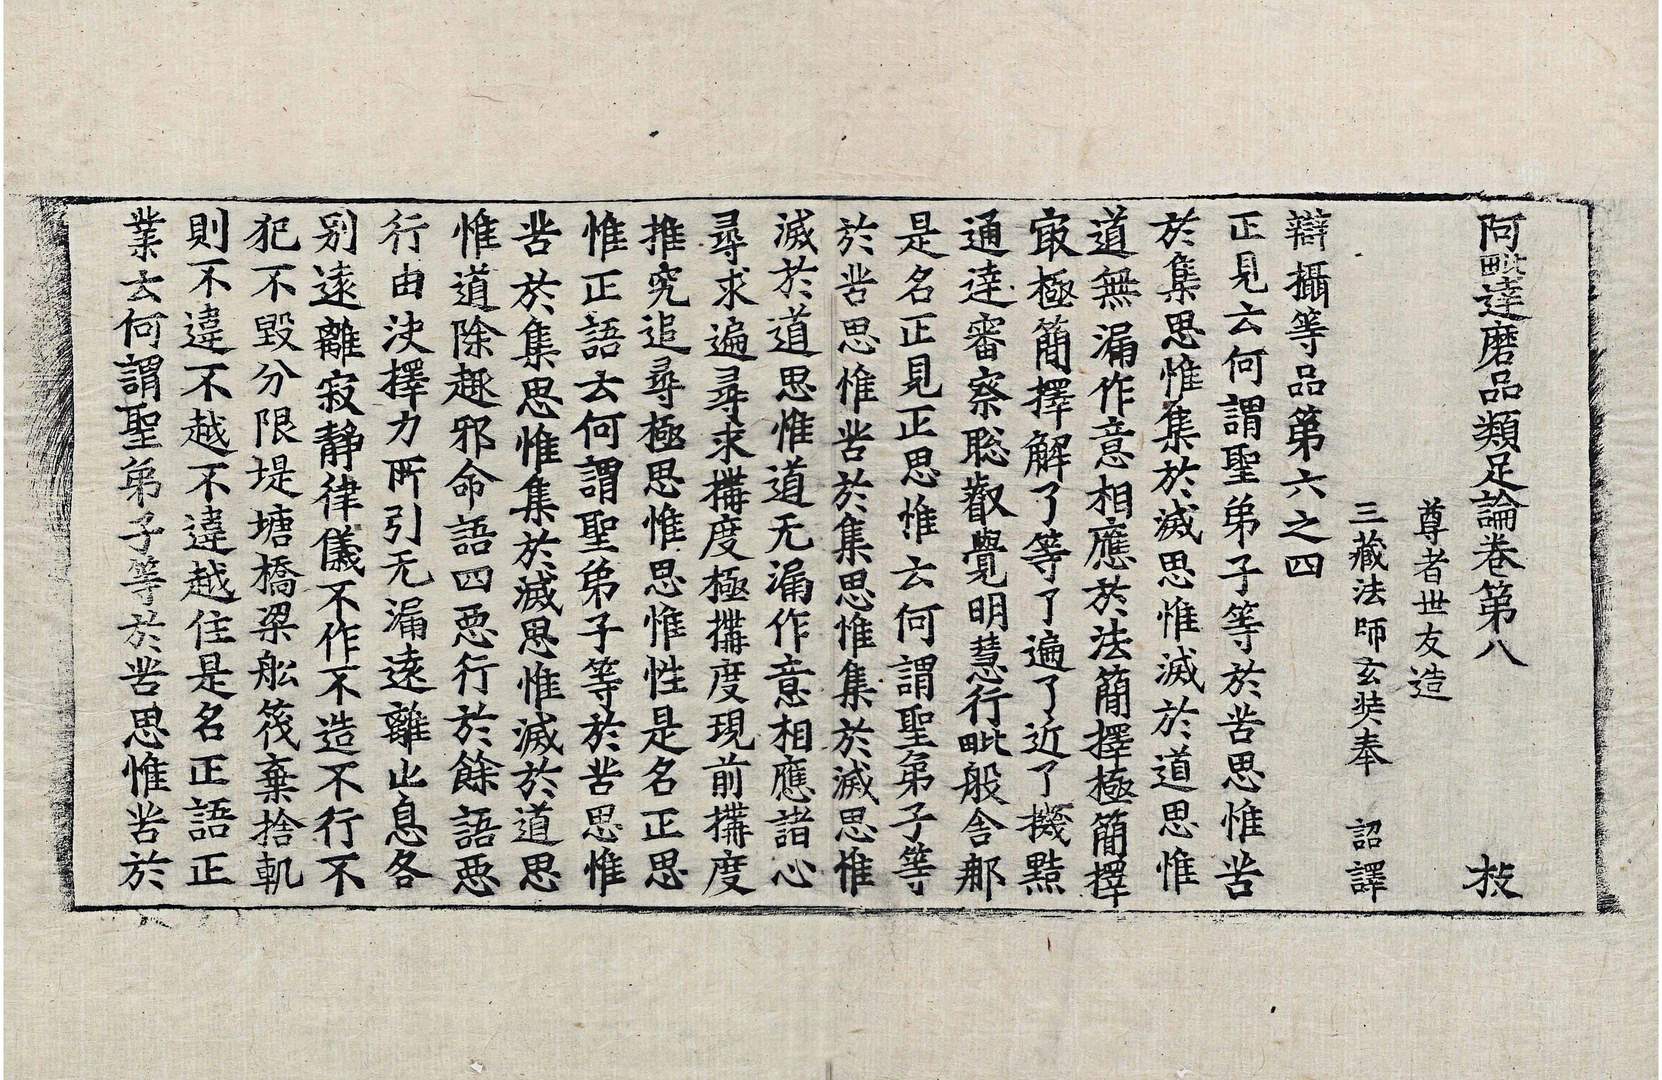 阿毗達磨品類足論卷第八 投
尊者世友造
三藏法師玄奘奉 詔譯
辯攝等品第六之四
正見云何謂聖弟子等於苦思惟苦
於集思惟集於滅思惟滅於道思惟
道無漏作意相應於法簡擇極簡擇
㝡極簡擇解了等了遍了近了機黠
通達審察聡叡覺明慧行毗般舍那
是名正見正思惟云何謂聖弟子等
於苦思惟苦於集思惟集於滅思惟
滅於道思惟道无漏作意相應諸心
尋求遍尋求搆度極搆度現前搆度
推究追尋極思惟思惟性是名正思
惟正語云何謂聖弟子等於苦思惟
苦於集思惟集於滅思惟滅於道思
惟道除趣邪命語四惡行於餘語惡
行由決擇力所引无漏遠離止息各
別遠離寂静律儀不作不造不行不
犯不毀分限堤塘橋梁舩筏棄捨軌
則不違不越不違越住是名正語正
業云何謂聖弟子等於苦思惟苦於